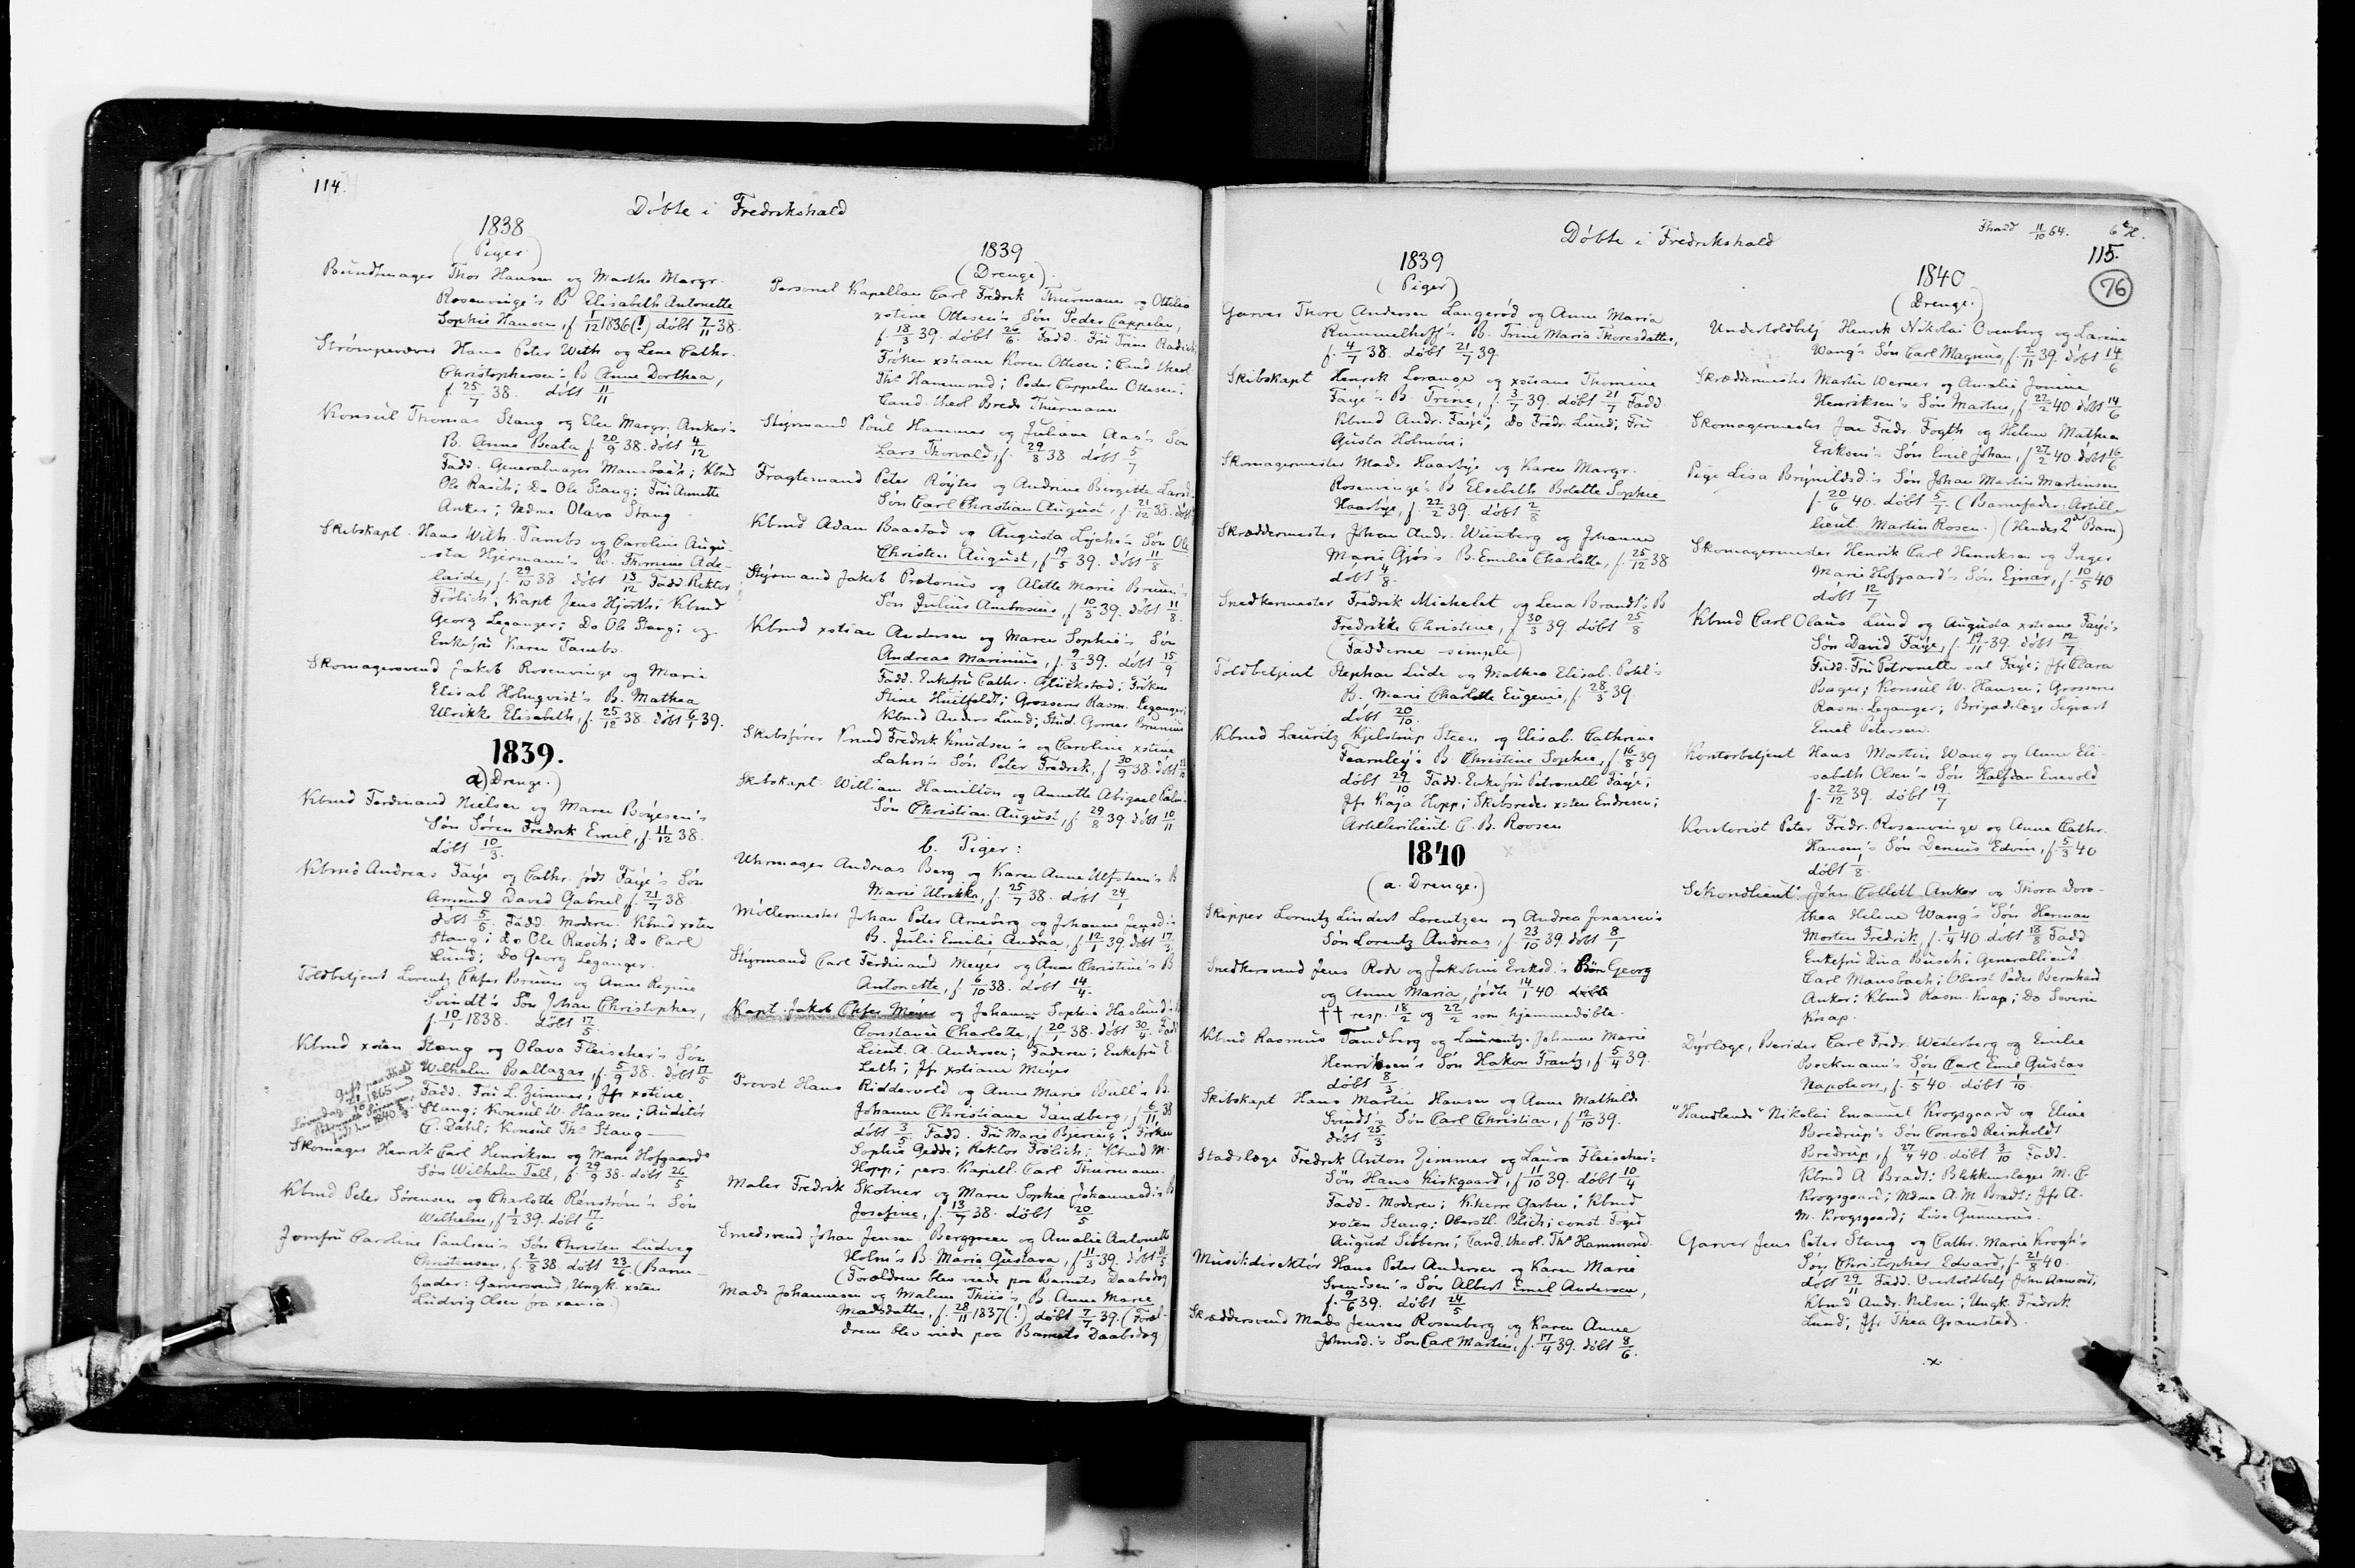 114.
Döbte i Fredrikshald
1838
(Piger)
Bundtmager Thor Hansen og Marthe Margr.
Rosenvinge's B Elisabeth Antonette
Sophie Hansen, f 1/12 1836(!) döbt 7/11 38.
Strömpevæver Hans Peter With og Lene Cathr.
Christophersen's B Anne Dorthea,
f. 25/7 38. döbt 11/11
Konsul Thomas Stang og Elen Margr. Anker's
B. Anna Beata f 20/9 38. döbt 4/12
Fadd. Generalmajor Mansbach; Kbmd
Ole Rasch; Do Ole Stang; Frú Annette
Anker; Mdme Olava Stang
Skibskapt. Hans Wilh. Tambs og Caroline Augu-
sta Hjermann's B. Thomine Ade-
laide, f. 29/10 38 döbt 13/12 Fadd. Rektor
Frölich; Kapt Jens Hjorth; Kbmd
Georg Leganger; Do Ole Stang; og
Enkefrú Karen Tambs.
Skomagersvend Jakob Rosenvinge og Marie
Elisab Holmqvist's B. Mathea
Ulrikke Elisabeth, f. 25/12 38. döbt 6/1 39.
1839.
a) Drenge.)
Kbmd Ferdinand Nielsen og Maren Boyesen's
Sön Sören Fredrik Emil, f. 11/12 38.
döbt 10/3.
Kbmd Andreas Faye og Cathr. födt Faye's Sön
Amund David Gabriel f. 21/7 38
döbt 5/5. Fadd. Moderen. Kbmd xsten
Stang; Do Ole Rasch; Do Carl
Lund; Do Georg Leganger.
Toldbetjent Lorentz Chfer Bruun og Anne Regine
Svindt's Sön Johan Christopher,
f. 10/1 1838. döbt 17/5
Kbmd xsten Stang og Olava Fleischer's Sön
Wilhelm Baltazar, f. 5/9 38. döbt 17/5
Fadd. Frú L. Zimmer; Jfr xstine
Stang; Konsul W. Hansen; Auditör
C. Dahl; Konsul Ths Stang
Gift paa Fhald
Löverdag 21/10 1865 med
Petronelle Sörensen,
född her 1840 3/9
Skomager Henrik Carl Henriksen og Marie Hofgaard's
Sön Wilhelm Tell, f. 29/9 38. döbt 26/5
Kbmd Peter Sörensen og Charlotte Renström's Sön
Wilhelm, f 1/2 39. döbt 17/6
Jomfru Caroline Paulsen's Sön Christen Ludvig
Christensen, f. 2/8 38. döbt 23/6. (Barne-
fader: Garversvend, Ungk. xsten
Ludvig Olsen fra xania.)
1839
(Drenge)
Personel Kapellan Carl Fredrik Thurmann og Ottilia
xstine Ottesen's Sön Peder Cappelen,
f. 18/3 39. döbt 26/6. Fadd. Frú Trine Radich;
Fröken xstiane Karen Ottesen; Cand. theol.
Ths Hammond; Peder Cappelen Ottesen;
Cand. theol Breds Thurmann
Styrmand Poul Hammer og Juliane Aas's Sön
Lars Thorvald, f. 29/8 38 döbt 5/7
Fragtemand Peter Röyter og Andrine Bergette Larsd.
Sön Carl Christian August, f. 21/12 38. döbt
Kbmd Adam Baastad og Augusta Lyche's Sön Ole
Christen August, f 19/5 39. döbt 11/8
Styrmand Jakob Prætorius og Alette Marie Bruun's
Sön Julius Ambrosius, f 10/3 39. döbt 11/8.
Kbmd xstian Andersen og Maren Sophie's Sön
Andreas Marinius, f. 9/3 39. döbt 15/9
Fadd. Enkefrú Cathr. Glückstad; Fröken
Stine Huitfeldt; Grosserer Rasm. Leganger;
Kbmd Anders Lund; Stud. Gorner Brunius
Skibsförer Knud Fredrik Knudsen's og Caroline xstine
Lahn's Sön Peter Fredrik, f 30/9 38. döbt
Skibskapt. William Hamilton og Annette Abigael
Sön Christian August, f. 29/8 39 döbt 10/11
b. Piger:
Uhrmager Andreas Berg og Karen Anne Ulfsteen's B
Marie Ulrikke, f. 25/7 38. döbt 24/1
Möllermester Johan Peter Arneberg og Johanne Jensd.s
B. Julie Emilie Andrea, f 12/1 39. döbt 17/3.
Styrmand Carl Ferdinand Meyer og Anne Christine's B
Antonette, f 6/10 38. döbt 14/4.
Kapt. Jakob Chfer Meyer og Johanne Sophie Haslund's
Constance Charlotte, f 20/1 38. döbt 30/4. Fadd
Lieut. A. Andersen; Faderen; Enkefrú E
Leth; Jfr xstiane Meyer
Provst Hans Riddervold og Anne Marie Bull's B.
Johanne Christiane Tandberg, f 6/11 38
döbt 3/5 Fadd. Frú Marie Bjering; Fröken
Sophie Gedde; Rektor Frölich; Kbmd M.
Hopp; pers. Kapell. Carl Thurmann.
Maler Fredrik Skotner og Maren Sophie Johannesd.s B
Josefine, f. 13/7 38. döbt 20/5
Smedsvend Johan Jensen Berggreen og Amalie Antonette
Holm's B. Maria Gustava, f 11/3 39. döbt 31/5
(Forældrene blev viede paa Barnets Daabsdag)
Mads Johannesen og Malene Thiis's B. Anne Marie
Madsdatter, f. 28/11 1837(!) döbt 7/7 39. (Foræl-
drene blev viede paa Barnets Daabsdag)
Döbte i Fredrikshald
Fhald 11/10 64.
6te H.
115.
76
1839
(Piger)
Garver Thore Andersen Langeröd og Anne Maria
Rummelhoff's B. Trine Maria Thoresdatter,
f. 4/7 38. döbt 21/7 39.
Skibskapt Henrik Lorange og xstiane Thomine
Faye's B. Trine, f. 3/7 39. döbt 21/7 Fadd
Kbmd Andr. Faye; Do Fredr. Lund; Frú
Gusta Holmboe;
Skomagermester Mads Haarbye og Karen Margr.
Rosenvinge's B Elsebeth Bolette Sophie
Haarbye, f. 22/2 39. döbt 2/8
Skræddermester Johan Andr. Wiinberg og Johanne
Marie Gjös's B. Emilie Charlotte, f. 25/12 38
döbt 4/8.
Snedkermester Fredrik Michelet og Lena Brandt's B
Fredrikke Christine, f 30/3 39. döbt 25/8
(Fadderne simple)
Toldbetjent Stephan Lude og Mathea Elisab. Pohl's
B. Marie Charlotte Eugenie, f. 28/3 39.
döbt 20/10.
Kbmd Lauritz Kjelstrup Steen og Elisab. Cathrine
Fearnley's B Christine Sophie, f 16/8 39
döbt 29/10 Fadd. Enkefrú Petronelle Faye;
Jfr Kaja Hopp; Skibsreder xsten Endresen;
Artillerilieut. C. B. Roosen
1840
(a. Drenge.)
Skipper Lorentz Lindert Lorentzen og Andrea Jonassen's
Sön Lorentz Andreas, f. 23/10 39. döbt 8/1
Snedkersvend Jens Rode og Jakobine Eriksd.s Börn Georg
og Anne Maria, födte 14/1 40. döbte
†† resp. 18/2 og 22/2 som hjemmedöbte.
Kbmd Rasmus Tandberg og Laurentze Johanne Marie
Henriksen's Sön Hakon Frantz, f 5/4 39.
döbt 8/3
Skibskapt Hans Martin Hansen og Anne Mathilde
Svindt's Sön Carl Christian, f 12/10 39.
döbt 25/3
Stadslæge Fredrik Anton Zimmer og Laura Fleischer's
Sön Hans Kirkgaard, f 11/10 39. döbt 10/4
Fadd. Moderen; K.herre Garben; Kbmd
xsten Stang; Oberstl. Blich; const. Foged
August Sibbern; Cand. theol. Ths Hammond.
Musikdirektör Hans Peter Andersen og Karen Marie
Svendsen's Sön Albert Emil Andersen,
f. 9/6 39. döbt 24/5
Skræddersvend Mads Jensen Rosenberg og Karen Anne
Johnsd.'s Sön Carl Martin, f. 17/4 39. döbt 8/6.
1840
(Drenge.)
Undertoldbetj Henrik Nikolai Ovenberg og Larine
Wang's Sön Carl Magnus, f. 2/11 39 döbt 14/6
Skræddermester Martin Werner og Amalie Jonine
Henriksen's Sön Martin, f. 22/2 40 döbt 14/6
Skomagermester Jan Fredr. Fogth og Helene Mathea
Eriksen's Sön Emil Johan, f 27/2 40 döbt 16/6
Pige Lisa Brynildsd's Sön Johan Martin Martinsen
f. 20/6 40. döbt 5/7. (Barnefader: Artille-
lieut. Martin Rosen.) (Hendes 2det Barn)
Skomagermester Henrik Carl Henriksen og Inger
Marie Hofgaard's Sön Ejnar, f. 10/5 40
döbt 12/7
Kbmd Carl Olaus Lund og Augusta xstiane Faye's
Sön David Faye, f. 19/11 39. döbt 12/7
Fadd. Frú Petronelle sal Faye; Jfr Clara
Bager; Konsul W. Hansen; Grosserer
Rasm. Leganger; Brigadelæge Sigvart
Emil Petersen.
Kontorbetjent Hans Martin Wang og Anne Eli-
sabeth Olsen's Sön Halfdan Enevold
f. 22/12 39. döbt 19/7
Kontorist Peter Fredr. Rosenvinge og Anne Cathr.
Hansen's Sön Dennis Edvin, f. 5/3 40
döbt 1/8.
Sekondlieut. John Collett Anker og Thora Doro-
thea Helene Wang's Sön Herman
Morten Fredrik, f. 1/4 40. döbt 18/8 Fadd
Enkefrú Dina Busch; Generallieut
Carl Mansbach; Oberst Peder Bernhard
Anker; Kbmd Rasm. Knap; Do Severin
Knap.
Dyrlæge, Berider Carl Fredr. Westerberg og Emilie
Bockmann's Sön Carl Emil Gustav
Napoleon, f. 1/5 40. döbt 1/10.
"Handlende" Nikolai Emanuel Krogsgaard og Eline
Bredrup's Sön Conrad Reinholdt
Bredrup, f 27/4 40. döbt 3/10 Fadd.
Kbmd A Bradt; Blikkenslager M. C
Krogsgaard; Mdme A. M Bradt; Jfr A.
M. Krogsgaard; Lise Gunnerus.
Garver Jens Peter Stang og Cathr. Marie Krogh's
Sön Christopher Edvard, f. 21/8 40.
döbt 29/11 Fadd. Overtoldbetj John Aamodt;
Kbmd Andr. Nilsen; Ungk. Fredrik
Lund; Jfr Thea Granstad.
.x.